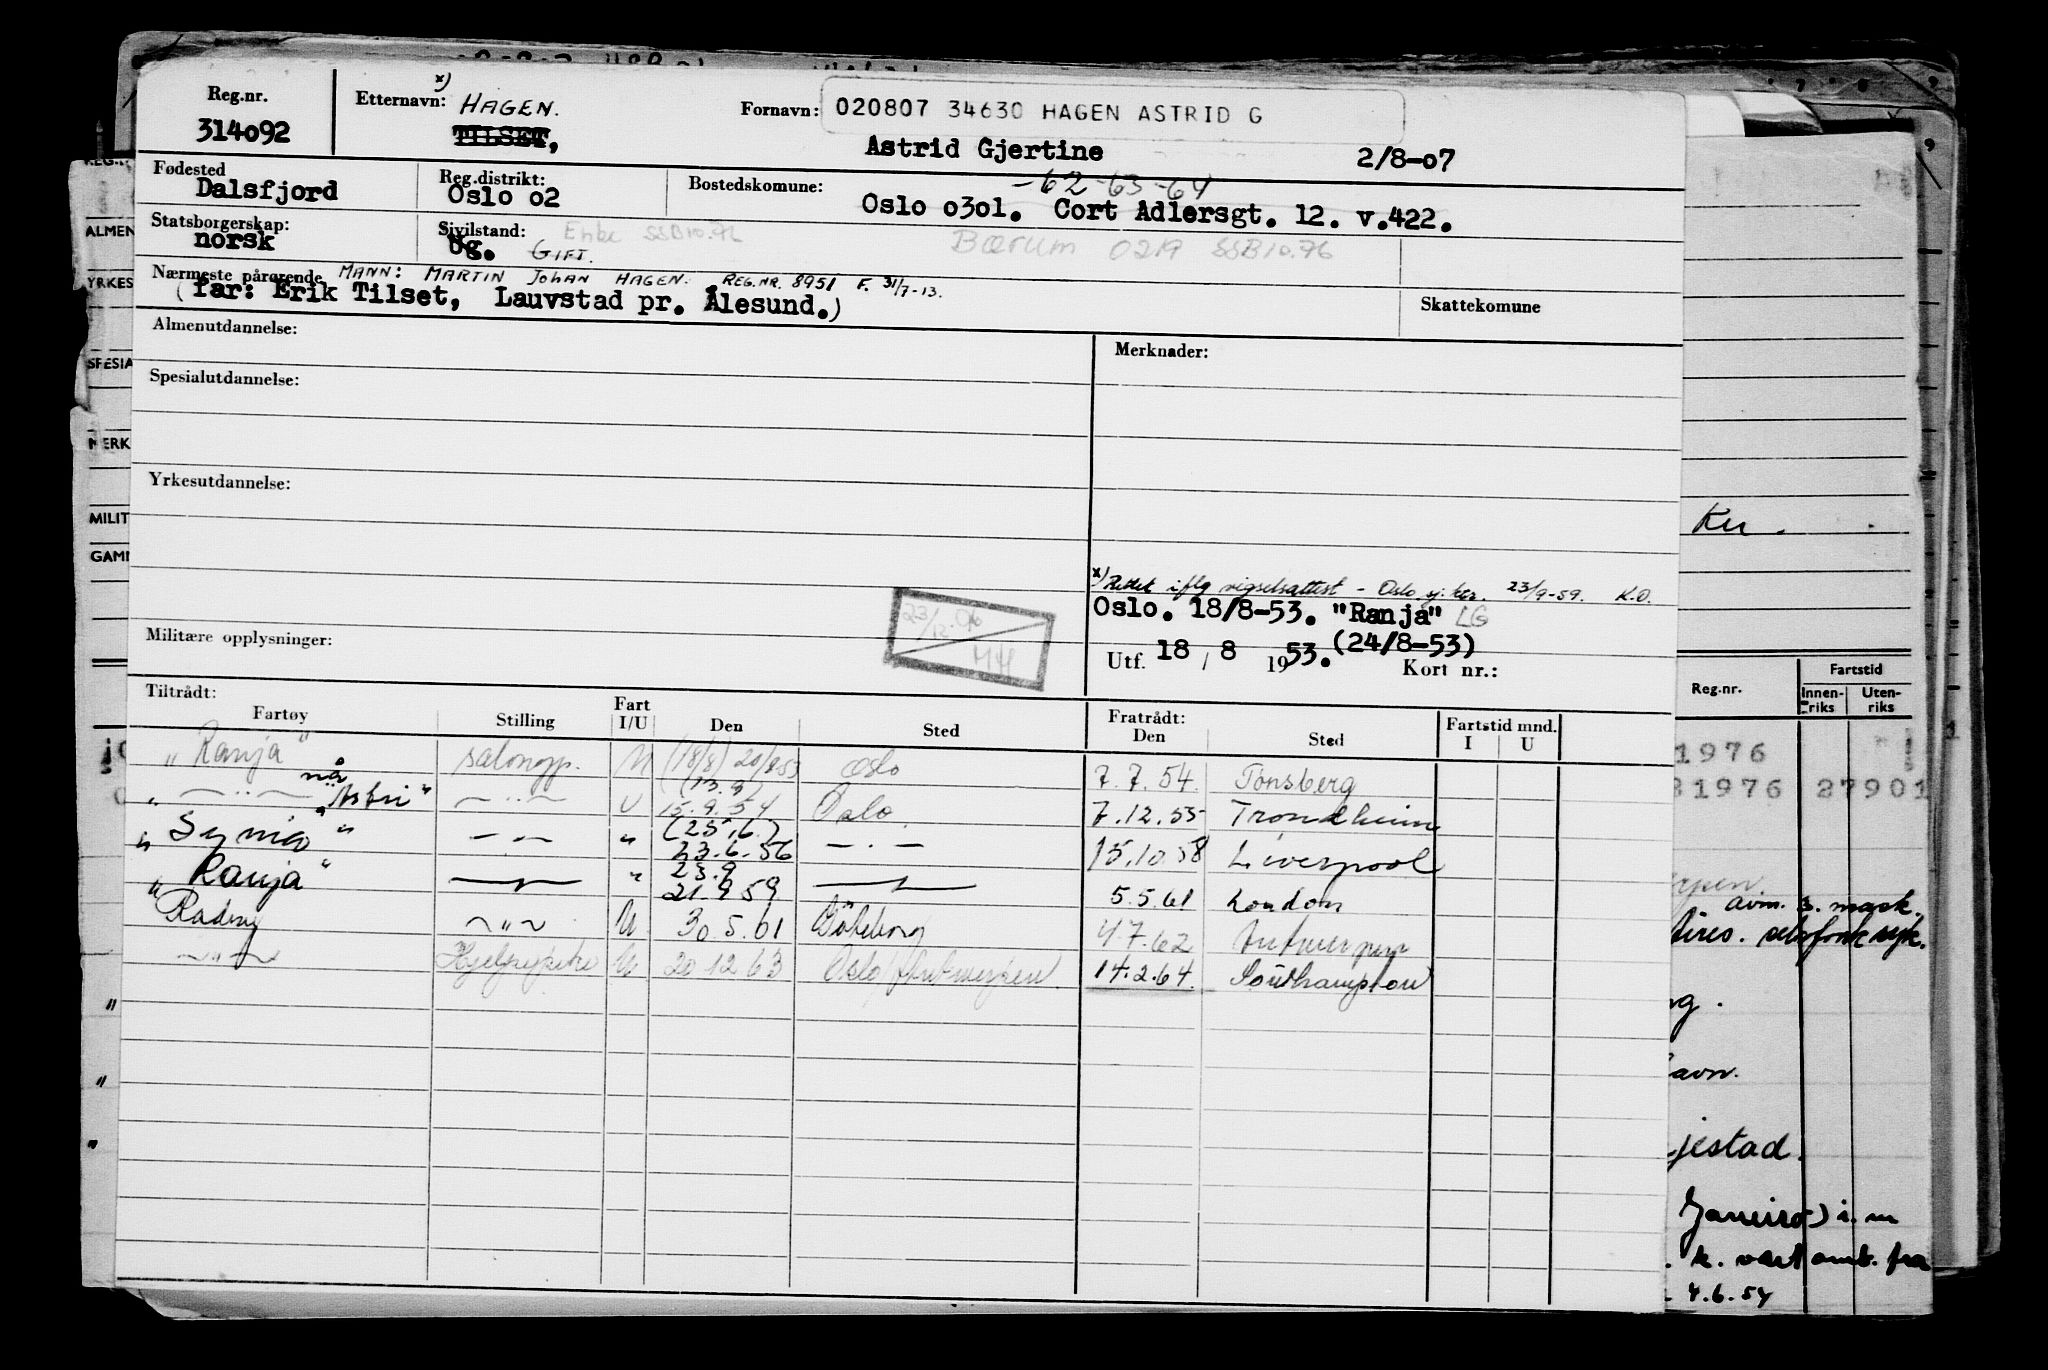 Reg.nr.
314092
x)
Etternavn: HAGEN.
TILSET,
Fornavn: 020807 34630 HAGEN ASTRID G
Astrid Gjertine 2/8-07
Fødested
Dalsfjord
Reg.distrikt:
Oslo 02
Bostedskomune: -62-63-64
Oslo 0301. Cort Adlersgt. 12. v.422.
Statsborgerskap:
norsk
Sivilstand: Enke SSB 10.76
Ug. GIFT.
Bærum 0219 SSB 10.76
Nærmeste pårørende MANN: MARTIN JOHAN HAGEN. REG.NR. 8951 F. 31/7-13.
(far: Erik Tilset, Lauvstad pr. Ålesund.)
Skattekomune
Almenutdannelse:
Merknader:
Spesialutdannelse:
Yrkesutdannelse:
x) Rettet iflg vigselsattest - Oslo 23/9-59. K.O.
Oslo. 18/8-53. "Ranja" LG
(24/8-53)
Utf. 18 / 8 1953. Kort nr.:
23/12.96
MH
Militære opplysninger:
Tiltrådt:
Fartøy Stilling Fart I/U Den Sted Fratrådt: Den Sted Fartstid mnd. I U
"Ranja" salongp. U (18/8) 20/8 53 Oslo 7.7.54. Tønsberg
— " — nå "Astri" — " — U (13.9) 15.9.54 Oslo. 7.12.55 Trondheim
"Synia" — " — " (25.6.) 23.6.56 — " — 15.10.58 Liverpool
"Ranja" — " — " 23.9 21.9 59 — " — 5.5.61 London
"Radny — " — U 30.5.61 Göteborg 4.7.62 Antwerpen
— " — U 20 12 63 Oslo/Antwerpen. 14.2.64. Southampton
ALMEN
YRKES
SPESIA
MERK
MILIT
GAM
Ku.
Reg.nr.
Fartstid
Innen-riks
Uten-riks
1976
1976 27901
avm. 3. mask.
jestad.
Janeiro) i. m
k. vært omb. fra
4.6.54